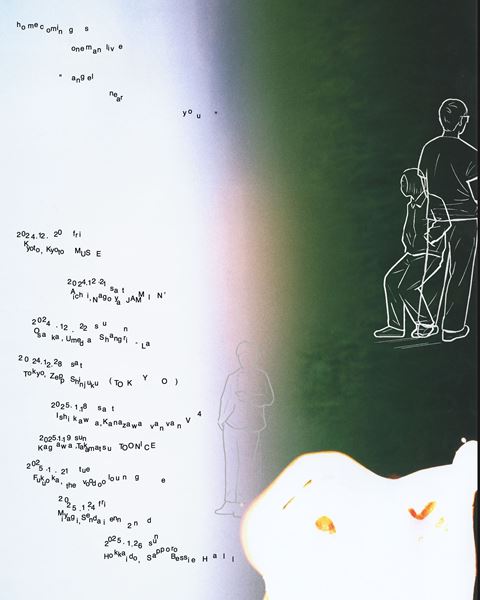 homecomings
oneman live
" angel
near
you "
2024.12. 20 fri
Kyoto, Kyoto MUSE
2024.12.21 sat
Aichi, Nagoya JAMMIN'
2024 .12. 22 sun
Osaka, Umeda Shangri-La
2024.12.28 sat
Tokyo, Zepp Shinjuku (TOKYO)
2025.1.18 sat
Ishikawa, Kanazawa vanvanV4
2025.1.19 sun
Kagawa, Takamatsu TOONICE
2025.1. 21 tue
Fukuoka, the voodoo lounge
2025.1.24 fri
Miyagi, Sendai enn 2nd
2025.1.26 sun
Hokkaido, Sapporo Bessie Hall